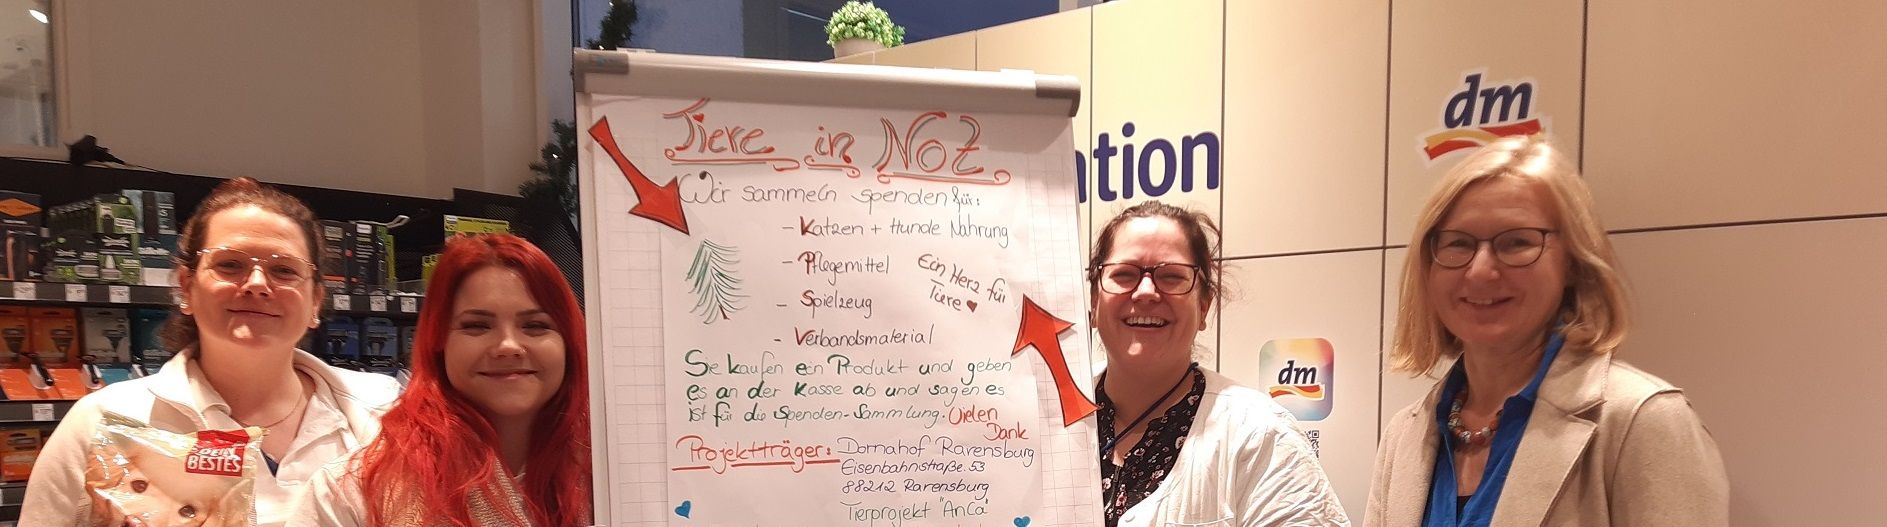 Tiere in NOT
Wir sammeln spenden für:
- Katzen + Hunde Nahrung
- Pflegemittel
- Spielzeug
- Verbandsmaterial
Ein Herz für
Tiere
Sie kaufen ein Produkt und geben
es an der Kasse ab und sagen es
ist für die Spenden-Sammlung. Vielen
Dank
Projektträger: Dornahof Ravensburg
Eisenbahnstraße 53
88212 Ravensburg
Tierprojekt "AnCa"
ation
dm
dm
DEIN
BESTES